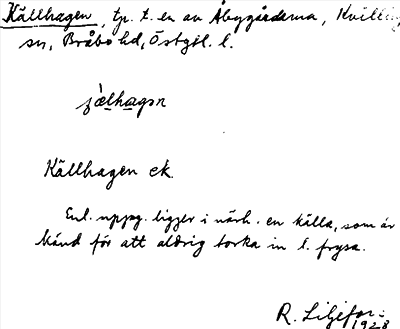 Källhagen, tp. t. en av Åbygårdarna,
sn, Bråbo hd, Östgöt. l.
Källhagen ek.
Enl. uppg. ligger i närh. en källa, som är
känd för att aldrig torka in l. frysa.
R. Liljefor:
1928